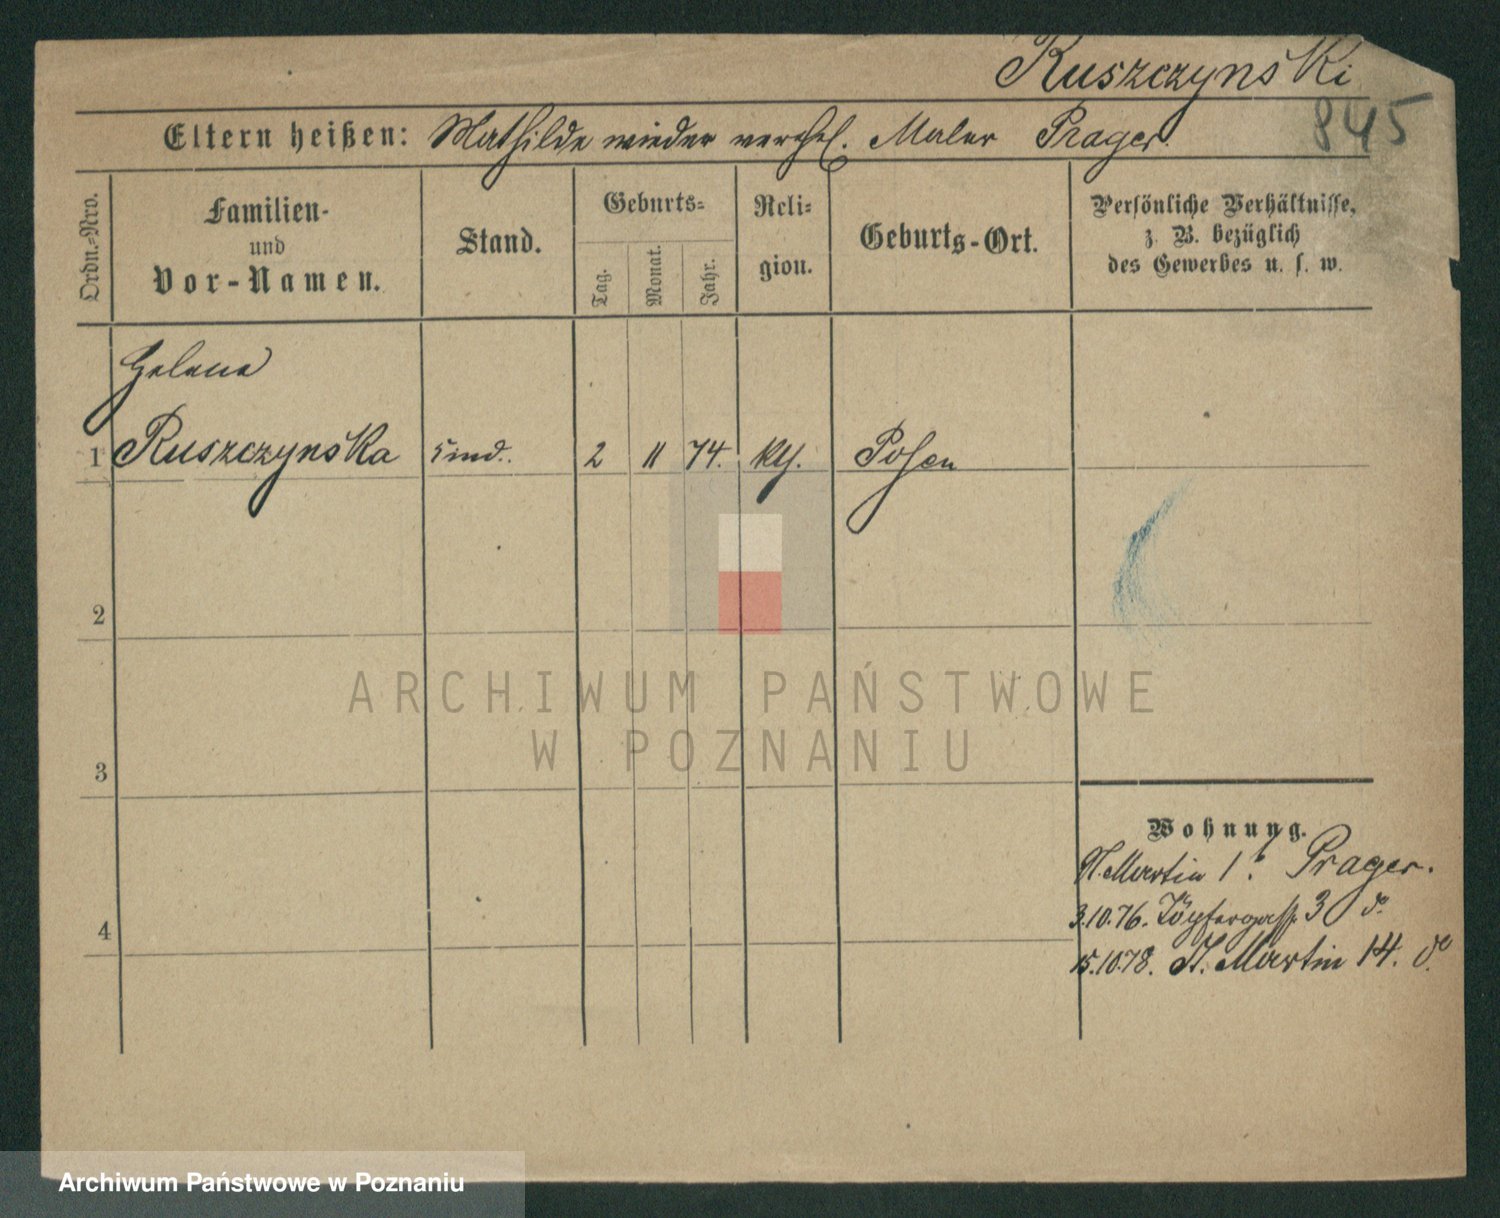 Ruszczynski
845
Eltern heißen: Mathilde wieder verehel. Maler Prager.
Ordn.-Nro.
Familien-
und
Vor-Namen.
Stand.
Geburts-
Tag.
Monat.
Jahr.
Reli-
gion.
Geburts-Ort.
Persönliche Verhältnisse,
z. B. bezüglich
des Gewerbes u. s. w.
Helena
1 Ruszczynska Kind. 2 11 74. kth. Posen
2
3
Wohnung.
St. Martin 1 Prager.
4
3.10.76. Töpfergasse 3 do.
15.10.78. St. Martin 14. do.
ARCHIWUM PAŃSTWOWE
W POZNANIU
Archiwum Państwowe w Poznaniu